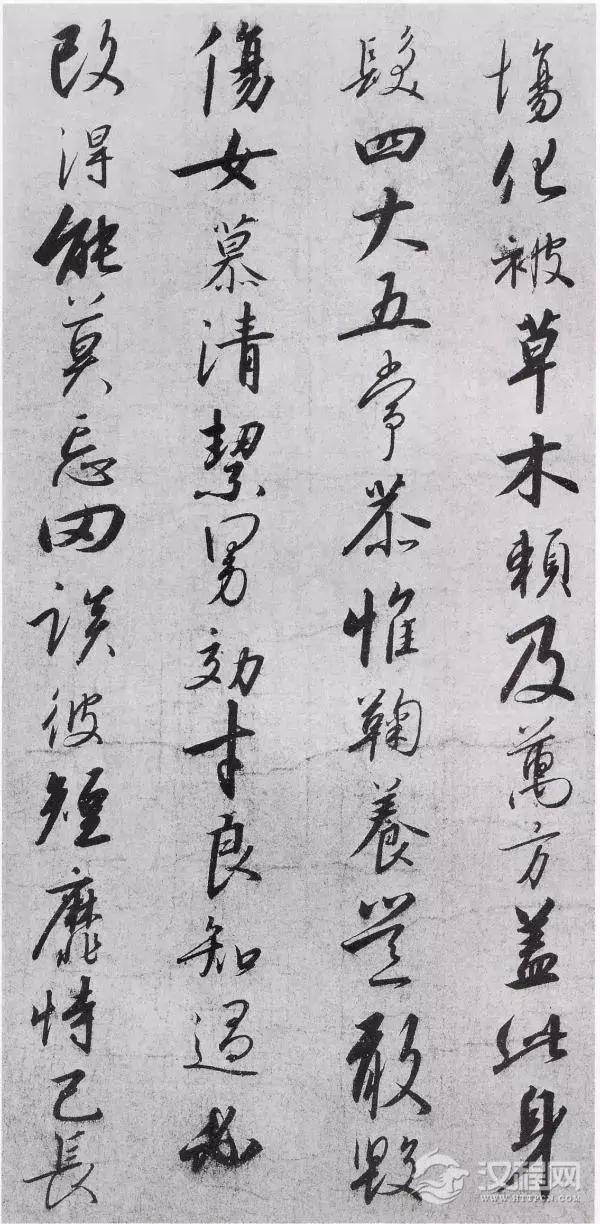 塲化被草木賴及萬方盖此身
髮四大五常恭惟鞠養豈敢毀
傷女慕清潔男効才良知過必
改得能莫忘罔談彼短靡恃己長
汉程网
WWW.HTTPCN.COM